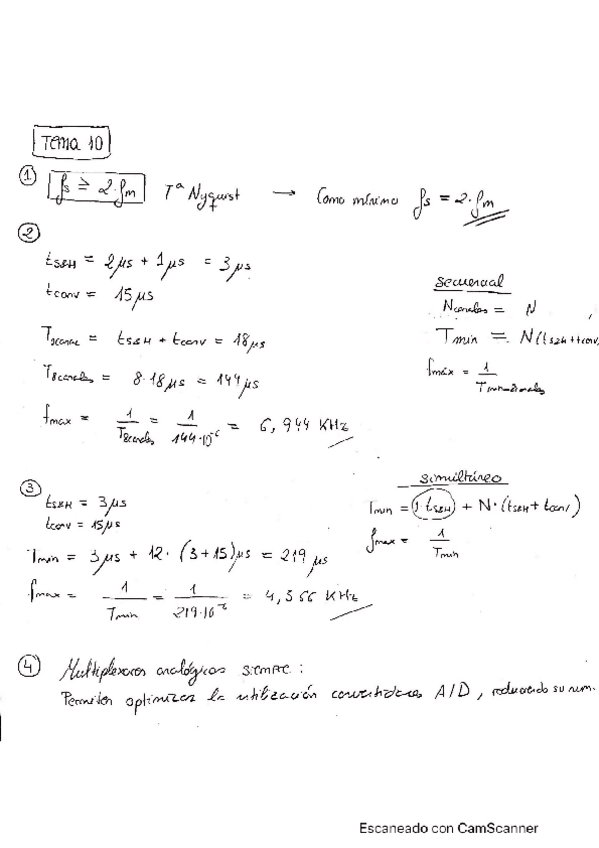 Tema 10
① fs ≥ 2·fm Tª Nyquist → Como mínimo fs = 2·fm
②
tS&H = 2μs + 1μs = 3μs
tconv = 15μs
T1canal = tS&H + tconv = 18μs
T8canales = 8·18μs = 144μs
fmax = 1/T8canales = 1/144·10^-6 = 6,944 KHz
Secuencial
Ncanales = N
Tmin = N(tS&H + tconv
fmáx = 1/Tmin-canales
③
tS&H = 3μs
tconv = 15μs
Tmin = 3μs + 12·(3+15)μs = 219μs
fmax = 1/Tmin = 1/219·10^-6 = 4,566 KHz
Simultáneo
Tmin = (1·tS&H) + N·(tS&H + tconv)
fmax = 1/Tmin
④ Multiplexores analógicos siempre:
Permiten optimizar la utilización convertidores A/D, reduciendo su num.
Escaneado con CamScanner